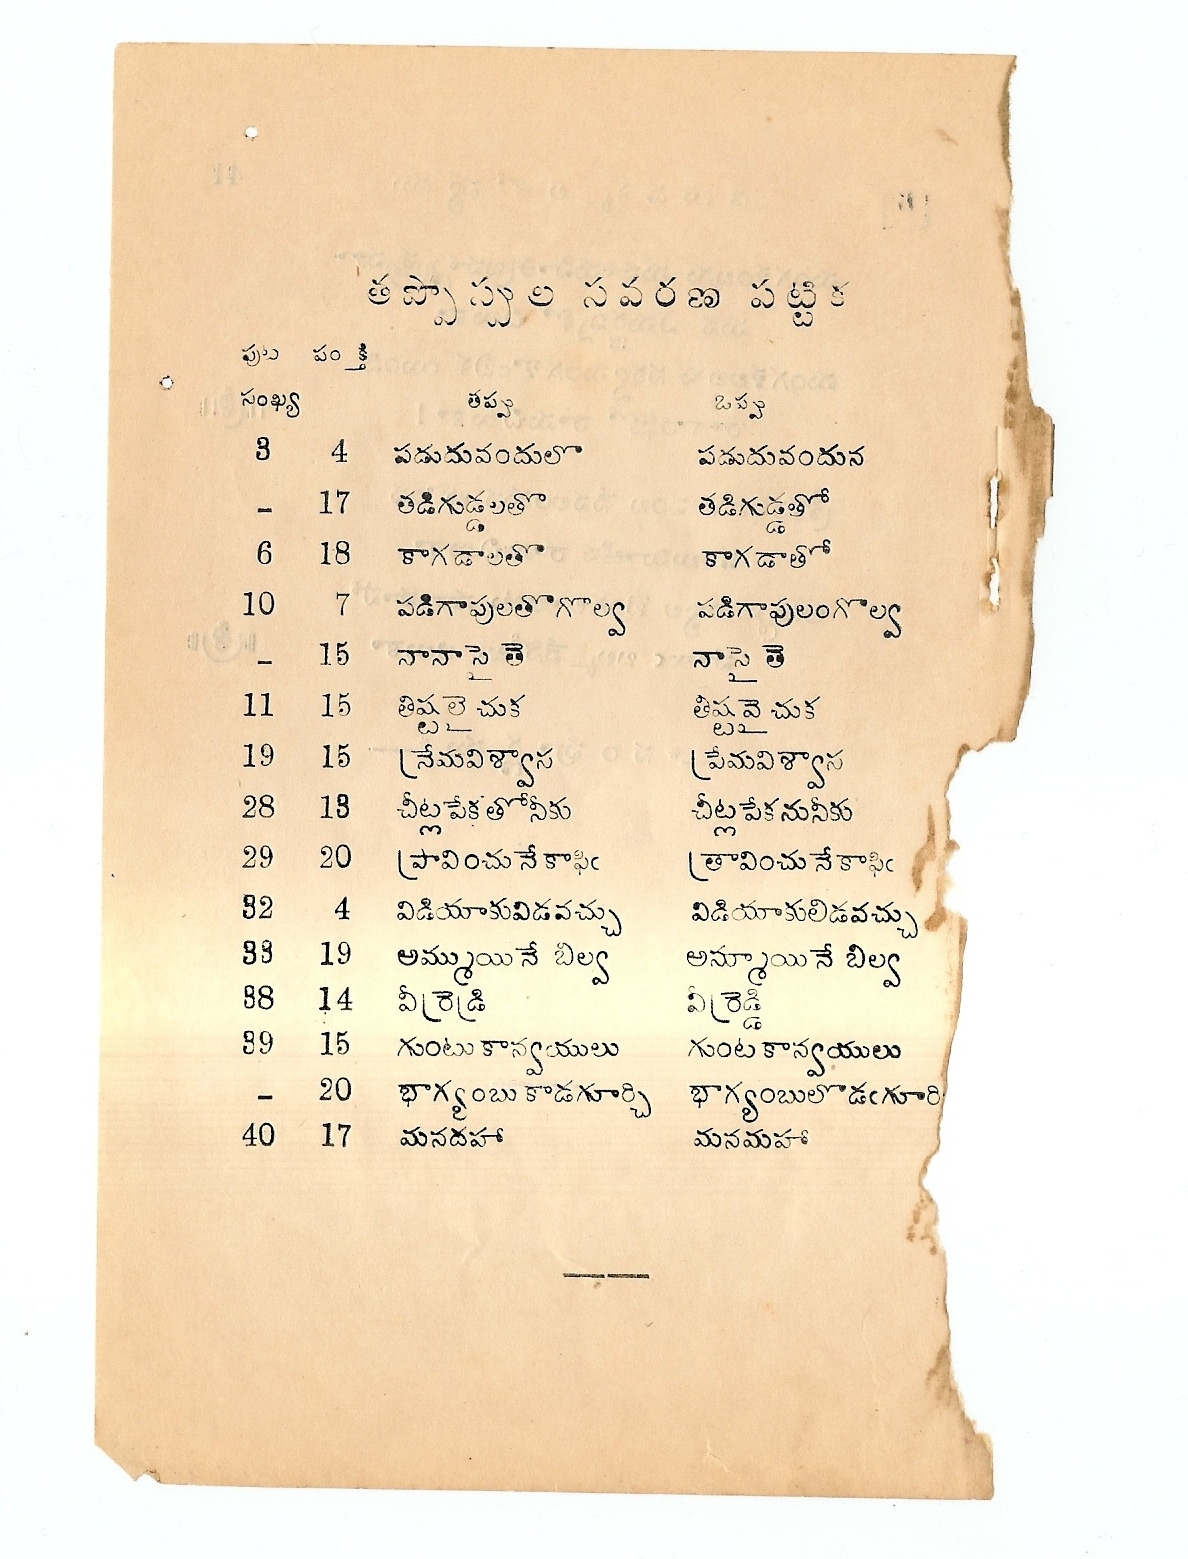 తప్పొప్పుల సవరణ పట్టిక
పుట పంక్తి
సంఖ్య తప్పు ఒప్పు
3 4 పడుదువందులొ పడుదువందున
– 17 తడిగుడ్డలతొ తడిగుడ్డతో
6 18 కాగడాలతొ కాగడాతో
10 7 పడిగాపులతొగొల్వ పడిగాపులంగొల్వ
– 15 నానాసై తె నాసై తె
11 15 తిష్టలై చుక తీష్టవై చుక
19 15 ప్రేమవిశ్వాస ప్రేమవిశ్వాస
28 13 చీట్లపేకతోనీకు చీట్లపేకనునీకు
29 20 ప్రావించునేకాఫిఁ త్రావించునేకాఫిఁ
32 4 విడియాకువిడవచ్చు విడియాకులిడవచ్చు
33 19 అమ్ముయినే బిల్వ అన్నూయినే బిల్వ
38 14 వీర్రెడ్రి వీర్రెడ్డి
39 15 గుంటు కాన్వయులు గుంట కాన్వయులు
– 20 భాగ్యంబు కొడగూర్చి భాగ్యంబులొడఁగూరి
40 17 మనదహా మనమహా